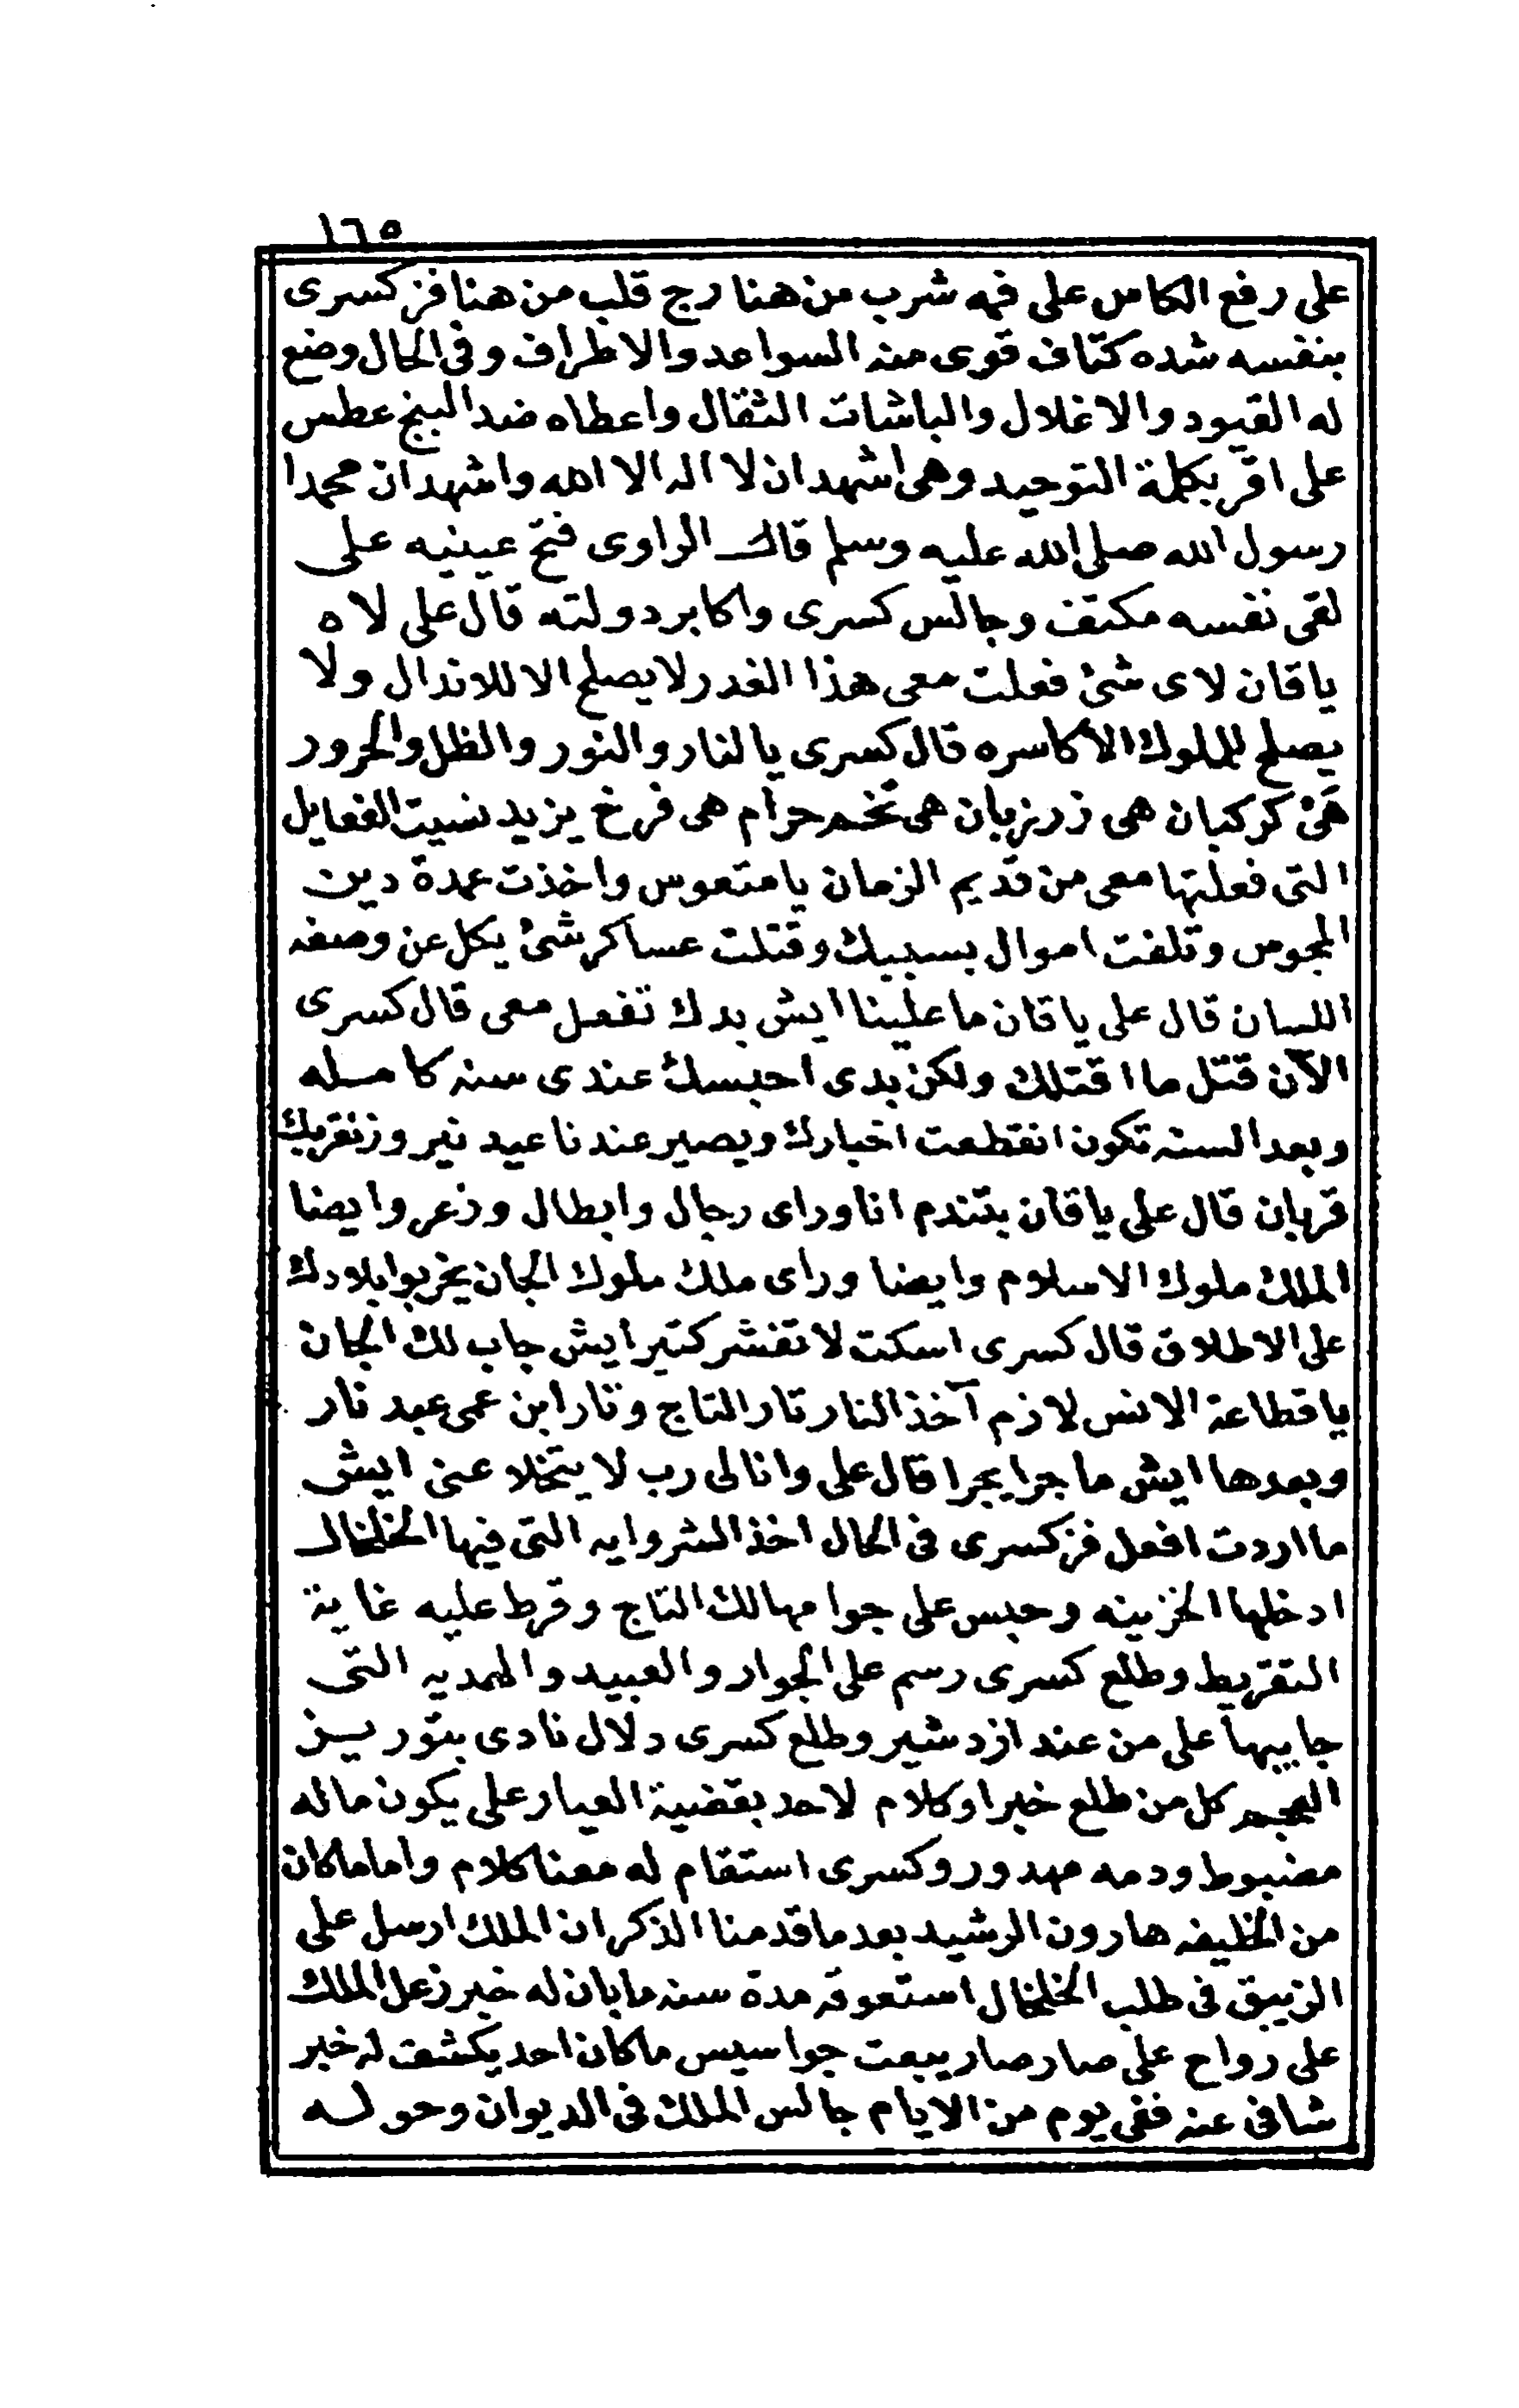 ١٦٥
على رفع الكاس على فمه شرب من هنا رج قلب من هنا فز كسرى
بنفسه شده كتاف قوى منه السواعد والاطراف وفى الحال وضع
له القيود والاغلال والباشات الثقال واعطاه ضد البنج عطس
على اقر بكلمة التوحيد وهى اشهد ان لا اله الا الله واشهد ان محمدا
رسول الله صلى الله عليه وسلم قال الراوى فتح عينيه على
لقى نفسه مكتف وجالس كسرى واكابر دولته قال على لاه
ياقان لاى شئ فعلت معى هذا الغدر لا يصلح الا للاندال ولا
يصلح للملوك الأكاسره قال كسرى يالنار والنور والظل والحرور
هئ كركبان هى زرزبان هى تخم حرام هى فرخ يزيد نسيت الفعايل
التى فعلتها معى من قديم الزمان يامتعوس واخذت عمدة دين
المجوس وتلفت اموال بسببك وقتلت عساكر شئ يكل عن وصفه
اللسان قال على ياقان ما علينا ايش بدك تفعل معى قال كسرى
الآن قتل ما اقتلك ولكن بدى احبسك عندى سنه كامله
وبعد السنه تكون انقطعت اخبارك ويصير عندنا عيد نيروز نقربك
قربان قال على ياقان بتندم انا وراى رجال وابطال وزعر وايضا
الملك ملوك الاسلام وايضا وراى ملك ملوك الجان يخربوا بلادك
على الاطلاق قال كسرى اسكت لا تفشر كتير ايش جاب لك الجان
ياقطاعة الانس لازم آخذ النار تار التاج وتار ابن عمى عبد نار
وبعدها ايش ما جرا يجرا قال على وانا لى رب لا يتخلا عنى ايش
ما اردت افعل فز كسرى فى الحال اخذ الشروايه التى فيها الخلخال
ادخلها الخزينه وحبس على جوا مهالك التاج وقرط عليه غاية
التقريط وطلع كسرى رسم على الجوار والعبيد والهديه التى
جايبها على من عند ازدشير وطلع كسرى دلال نادى بتوريز
العجم كل من طلع خبر او كلام لاحد بقضية العيار على يكون ماله
مضبوط ودمه مهدور وكسرى استقام له معنا كلام واما ما كان
من الخليفه هارون الرشيد بعد ما قدمنا الذكر ان الملك ارسل على
الزيبق فى طلب الخلخال استعوقه مدة سنه ما بان له خبر زعل الملك
على رواح على صار صار يبعت جواسيس ما كان احد يكشف له خبر
شافى عنه ففى يوم من الايام جالس الملك فى الديوان وحوله